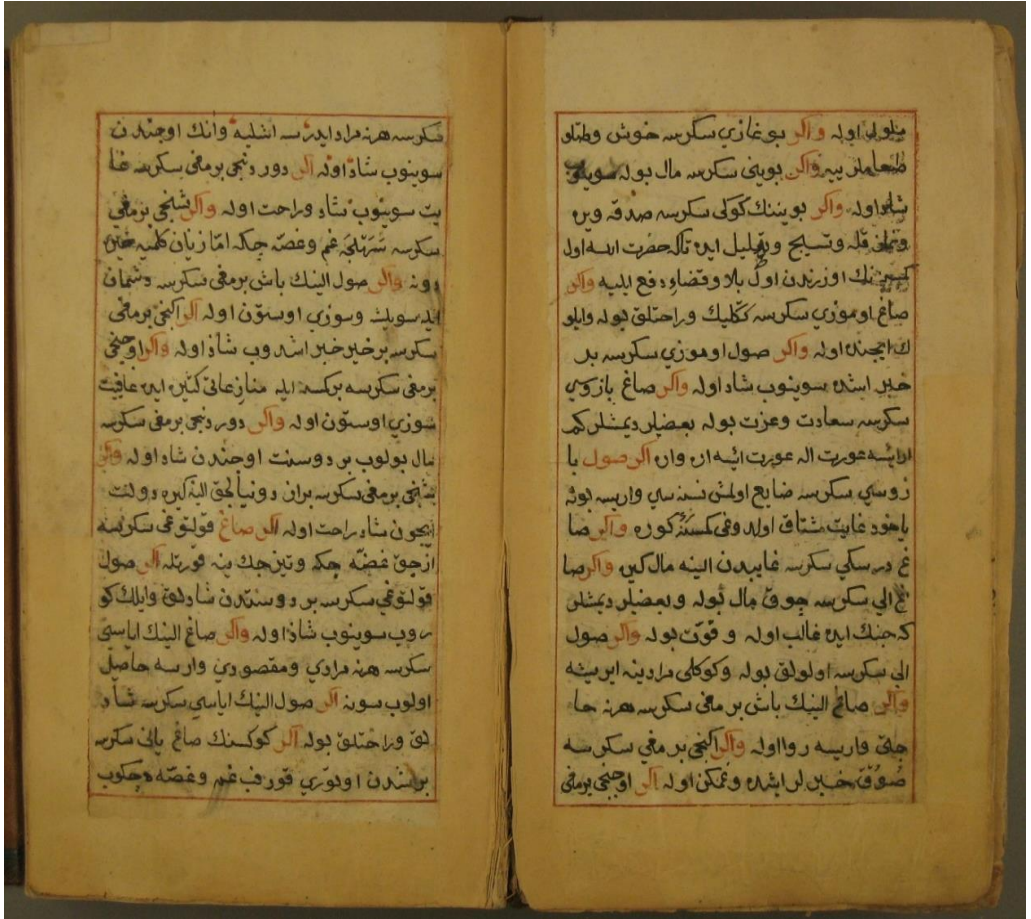 ملول اوله واكر بوغازي سكرسه خوش وطتلو
طعاملر ييه واكر بويني سكرسه مال بوله سوينوب
شاد اوله واكر بويننك كوكى سكرسه صدقه ويره
ونماز قله وتسبيح وتهليل ايده تاكه حضرت الله اول
كسه‌نك اوزرندن اول بلا وقضاء دفع ايليه واكر
صاغ اوموزي سكرسه ككليك وراحتلق بوله وايلو
ك ايچنده اوله واكر صول اوموزي سكرسه بر
خبر اشده سوينوب شاد اوله واكر صاغ بازوسي
سكرسه سعادت وعزت بوله بعضيلر ديمشلر كم
ار ايسه عورت اله عورت ايسه اره واره اكر صول با
زوسي سكرسه ضايع اولمش نسنه سي واريسه بوله
ياخود غايت مشتاق اولدوغى كمسنه كوره واكر صا
غ درسكي سكرسه غايبدن الينه مال كيره واكر صا
غ الي سكرسه چوق مال بوله وبعضيلر ديمشلر
كه جنك ايده غالب اوله و قوت بوله واكر صول
الي سكرسه اولولق بوله وكوكلى مرادينه ايريشه
واكر صاغ الينك باش برمغى سكرسه هرنه حا
جتى واريسه روا اوله واكر اكنجى برمغي سكرسه
صوق خبرلر ايشده وغمكن اوله اكر اوچنجى برمغى
سكرسه هرنه مراد ايدرسه اشليه وانك اوجندن
سوينوب شاد اوله اكر دوردنجى برمغى سكرسه غا
يت سوينوب شاد وراحت اوله واكر بشنجى برمغي
سكرسه غم وغصه چكه اما زيان كلميه خيره
دونه واكر صول الينك باش برمغى سكرسه دشمان
ايله سويلشه وسوزي اوستون اوله اكر اكنجى برمغى
سكرسه بر خير خبر اشدوب شاد اوله واكر اوچنجى
برمغى سكرسه بر كسه ايله منازعاتى كتيره ايده عاقبت
سوزي اوستون اوله واكر دوردنجى برمغى سكرسه
مال بولوب بر دوست اوجندن شاد اوله واكر
بشنجى برمغى سكرسه براز دونيالق النه كيره دولت
ايچون شاد راحت اوله اكر صاغ قولتوغى سكرسه
ازجق غصه چكه وتيزجك ينه قورتله اكر صول
قولتوغي سكرسه بر دوستدن شادلق وايلك كو
روب سوينوب شاد اوله واكر صاغ الينك اياسى
سكرسه هرنه مرادي ومقصودي وارسه حاصل
اولوب سونه اكر صول الينك اياسي سكرسه شاد
لق وراحتلق بوله اكر كوكسنك صاغ يانى سكرسه
بر اوتوري قورقب غم وغصه چكوب